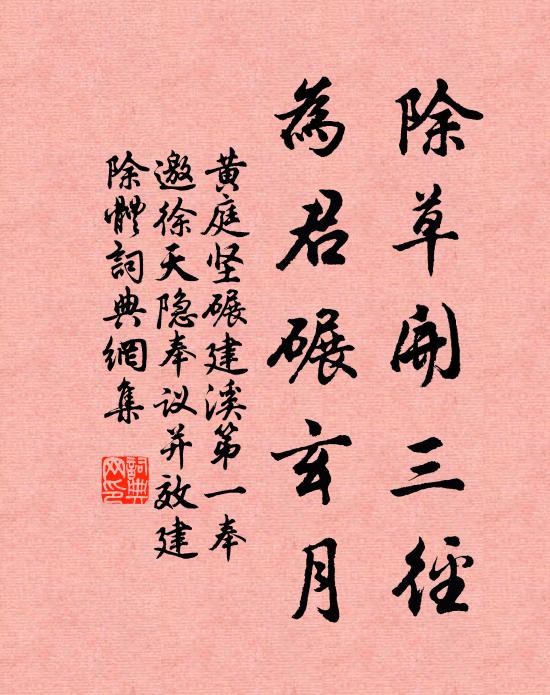 除草開三徑
為君碾玄月
黄庭坚碾建溪第一奉
邀徐天隐奉议并效建
除體詞典網集
詞典網印